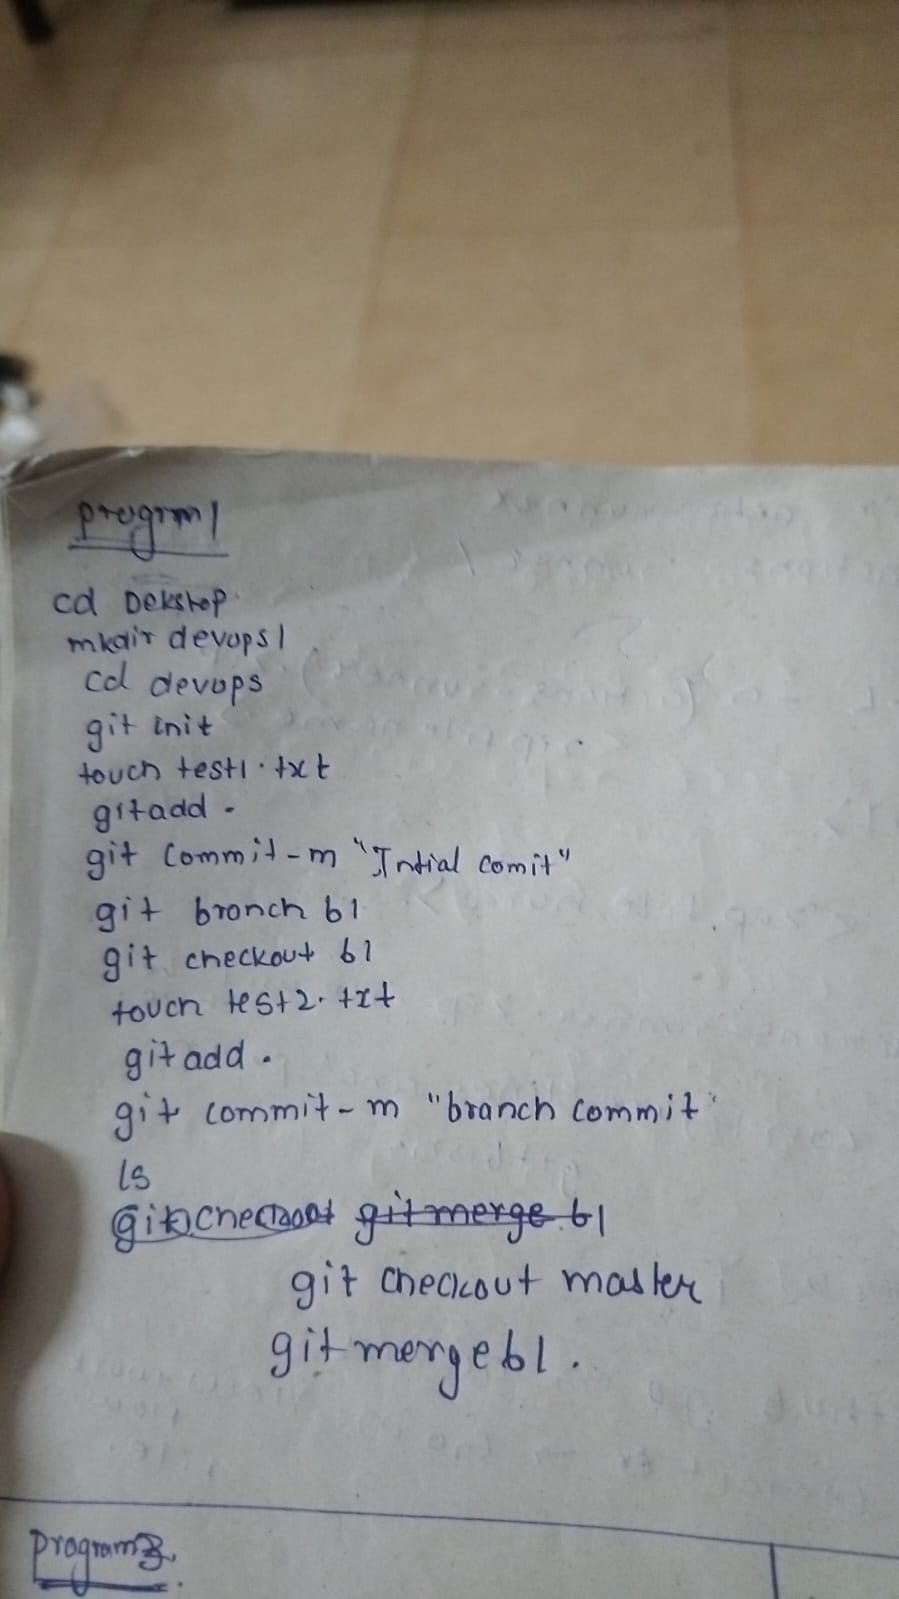 progrm 1
cd Dekstop
mkdir devops1
cd devops
git init
touch test1.txt
git add .
git commit -m "Intial comit"
git bronch b1
git checkout b1
touch test2.txt
git add .
git commit - m "branch commit"
ls
git merge b1
git checkout master
git merge b1.
program 3.